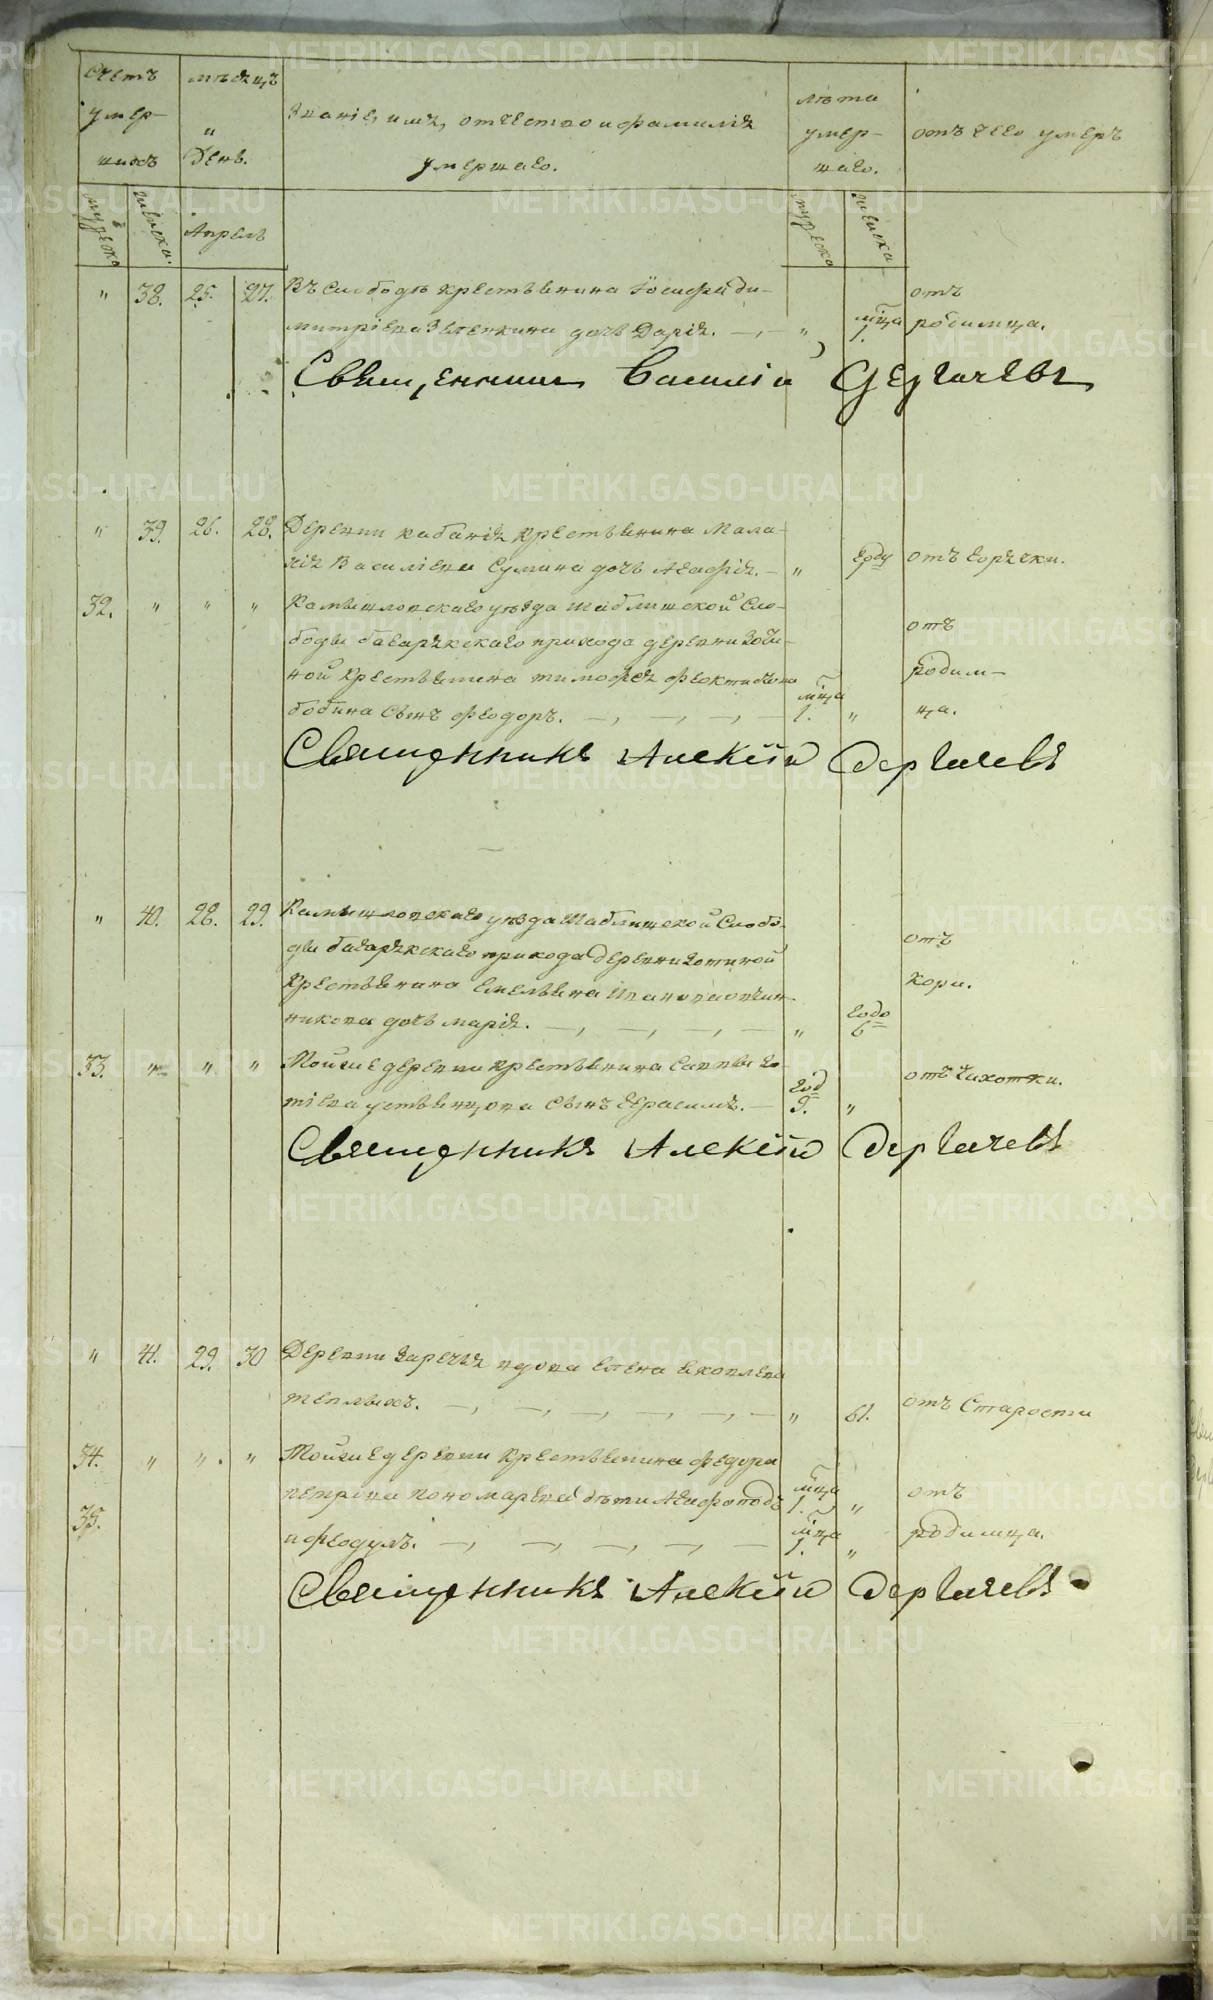 Счетъ умер-шихъ
мѣсяцъ и День.
Званіе, имя, отчество и фамилія умершаго.
лѣта умер-шаго.
отъ чего умеръ
мужеска
женска.
Апрель
мужеска
женска
" 38. 25. 27. Въ Слободѣ крестьянина Іосифа Ди-
митріева Зеленкина дочь Дарія. — " мца 1. отъ родимца.
Священникъ Василій Дергачевъ
" 39. 26. 28. Деревни Кабанія крестьянина Мала-
хія Василіева Сумина дочь Агафія. — " году отъ горячки.
32. " " " Камышловскаго уѣзда Шаблишской Сло-
боды багарякскаго прихода деревни Зоти-
ной крестьянина Тимофея Феоктистова
бобина сынъ Феодоръ. — мца 1. " отъ родим-ца.
Священникъ Алексій Дергачевъ
" 40. 28. 29. Камышловскаго уѣзда Шаблишской Слобо-
ды багарякскаго прихода деревни Зотиной
крестьянина Емельяна Иванова овчин-
никова дочь Марія. — " годо 6 отъ кори.
33. " " " Той же деревни крестьянина Саввы
устьянцова сынъ Герасимъ. — год 9. " отъ чихотки.
Священникъ Алексій Дергачевъ
" 41. 29. 30 Деревни Заречья вдова Елена Яковлева
Теплыхъ. — " 61. отъ Старости
34. " " " Той же деревни крестьянина Федора
петрова пономарева дѣти Агафоподъ мца 1. " отъ
35. и Феодулъ. — мца 1. " родимца.
Священникъ Алексій Дергачевъ
METRIKI.GASO-URAL.RU